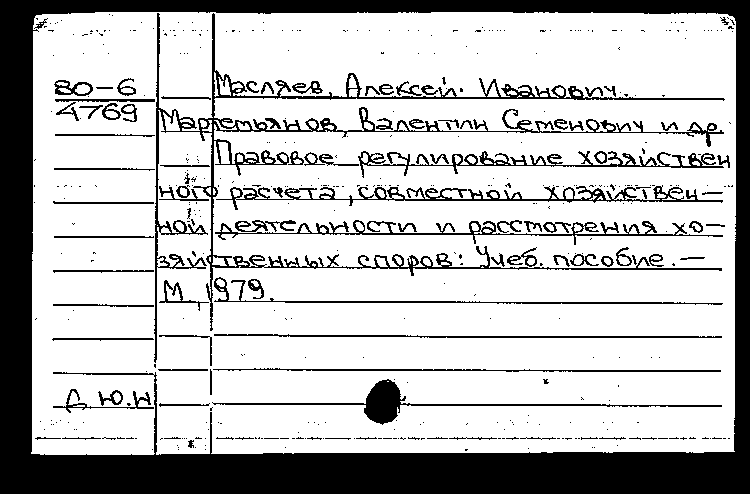 80-6
4769
Масляев, Алексей Иванович.
Мартемьянов, Валентин Семенович и др.
Правовое регулирование хозяйствен
ного расчета, совместной хозяйствен-
ной деятельности и рассмотрения хо-
зяйственных споров: Учеб. пособие.-
М., 1979.
Д Ю.Н